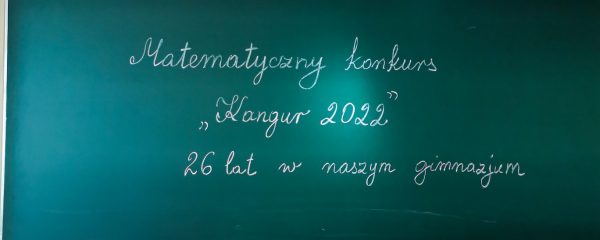 Matematyczny konkurs
„Kangur 2022”
26 lat w naszym gimnazjum